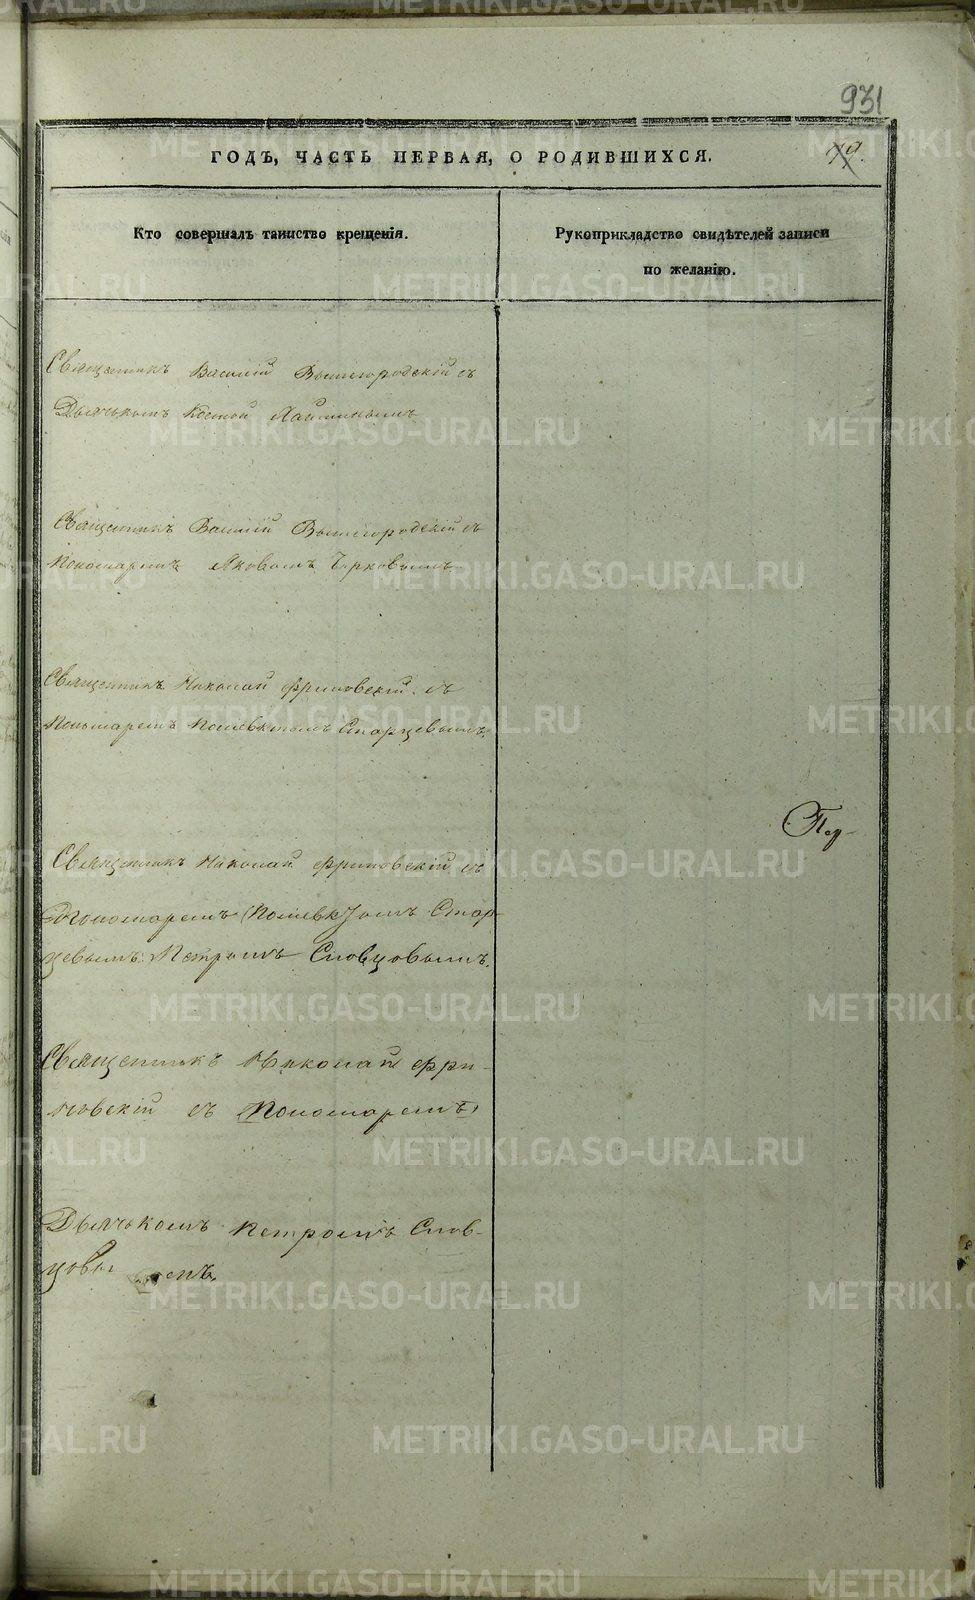 931
ГОДЪ, ЧАСТЬ ПЕРВАЯ, О РОДИВШИХСЯ.
Кто совершалъ таинство крещенія.
Рукоприкладство свидѣтелей записи
по желанію.
Священникъ Василій Вышегородскій съ
Дьячькомъ
Священникъ Василій Вышегородскій съ
Пономаремъ Яковомъ
Священникъ Николай Фриновскій съ
Пономаремъ Полевктомъ Старцевымъ.
Священникъ Николай Фриновскій съ
Пономаремъ (Полевктомъ Стар-
цевымъ Петромъ Словцовымъ.
Священникъ Николай Фри-
новскій съ Пономаремъ
Дьячькомъ Петромъ Слов-
цовы емъ.
METRIKI.GASO-URAL.RU